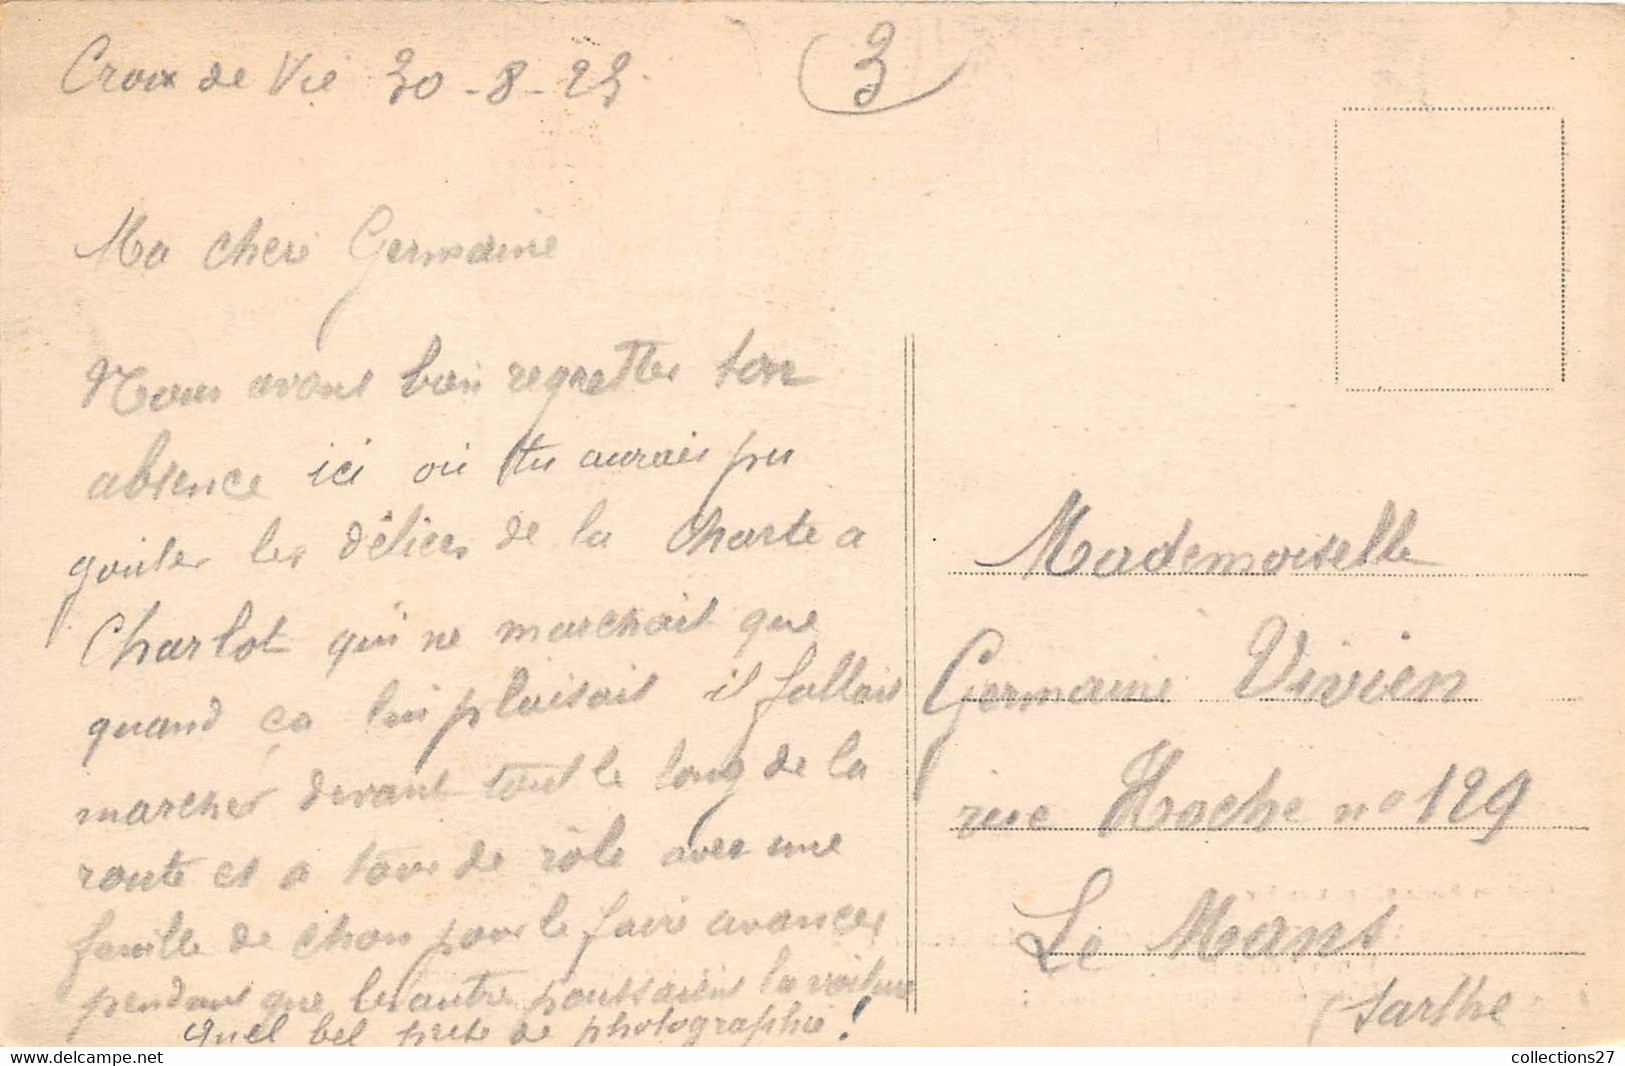 Croix de Vie 30-8-23.
3
Ma cheri Germaine
Nous avons bien regretter ton
absence ici où tu aurais pu
gouter les délices de la charte a
Charlot qui ne marchait que
quand ca lui plaisait il fallais
marcher devant tout le long de la
route et a tour de role avec une
feuille de chou pour le faire avancer
pendant que les autre poussaient la voiture
Quel bel prise de photographie !
Mademoiselle
Germaine Vivien
rue Hoche no 129
Le Mans
(Sarthe
collections27